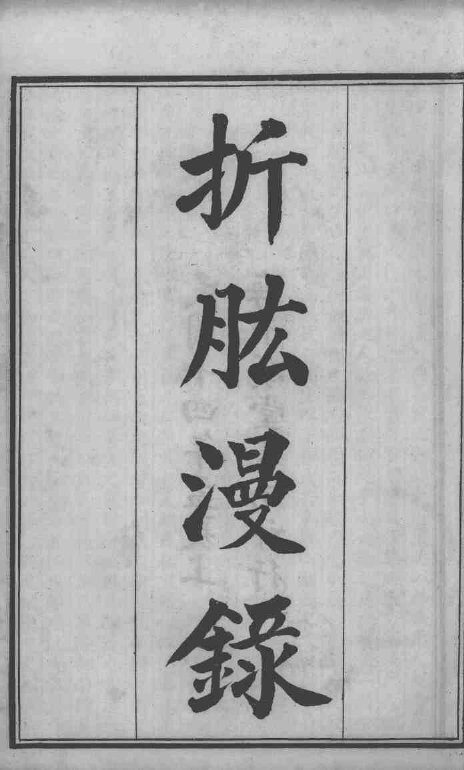 折肱漫錄